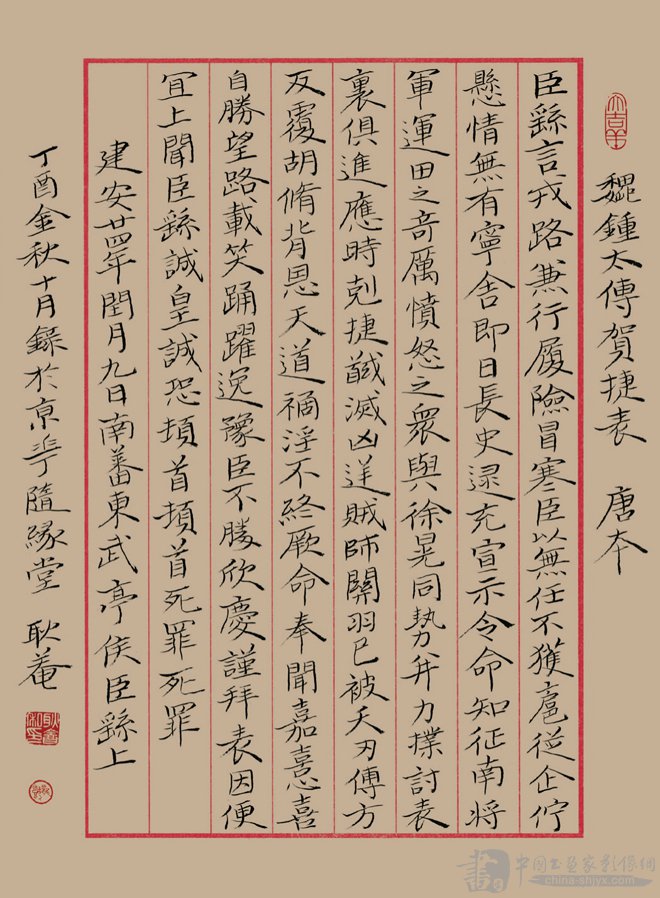 魏鍾太傅賀捷表 唐本
臣繇言戎路兼行履險冒寒臣以無任不獲扈從企佇
懸情無有寧舍即日長史逯充宣示令命知征南將
軍運田之奇厲憤怒之眾與徐晃同勢并力撲討表
裏俱進應時剋捷馘滅凶逆賊帥關羽已被矢刃傅方
反覆胡脩背恩天道禍淫不終厥命奉聞嘉憙喜
自勝望路載笑踊躍逸豫臣不勝欣慶謹拜表因便
宜上聞臣繇誠皇誠恐頓首頓首死罪死罪
建安廿四年閏月九日南蕃東武亭侯臣繇上
丁酉金秋十月錄於京華隨緣堂 耿菴
中国书画家影像网
china-shjyx.com